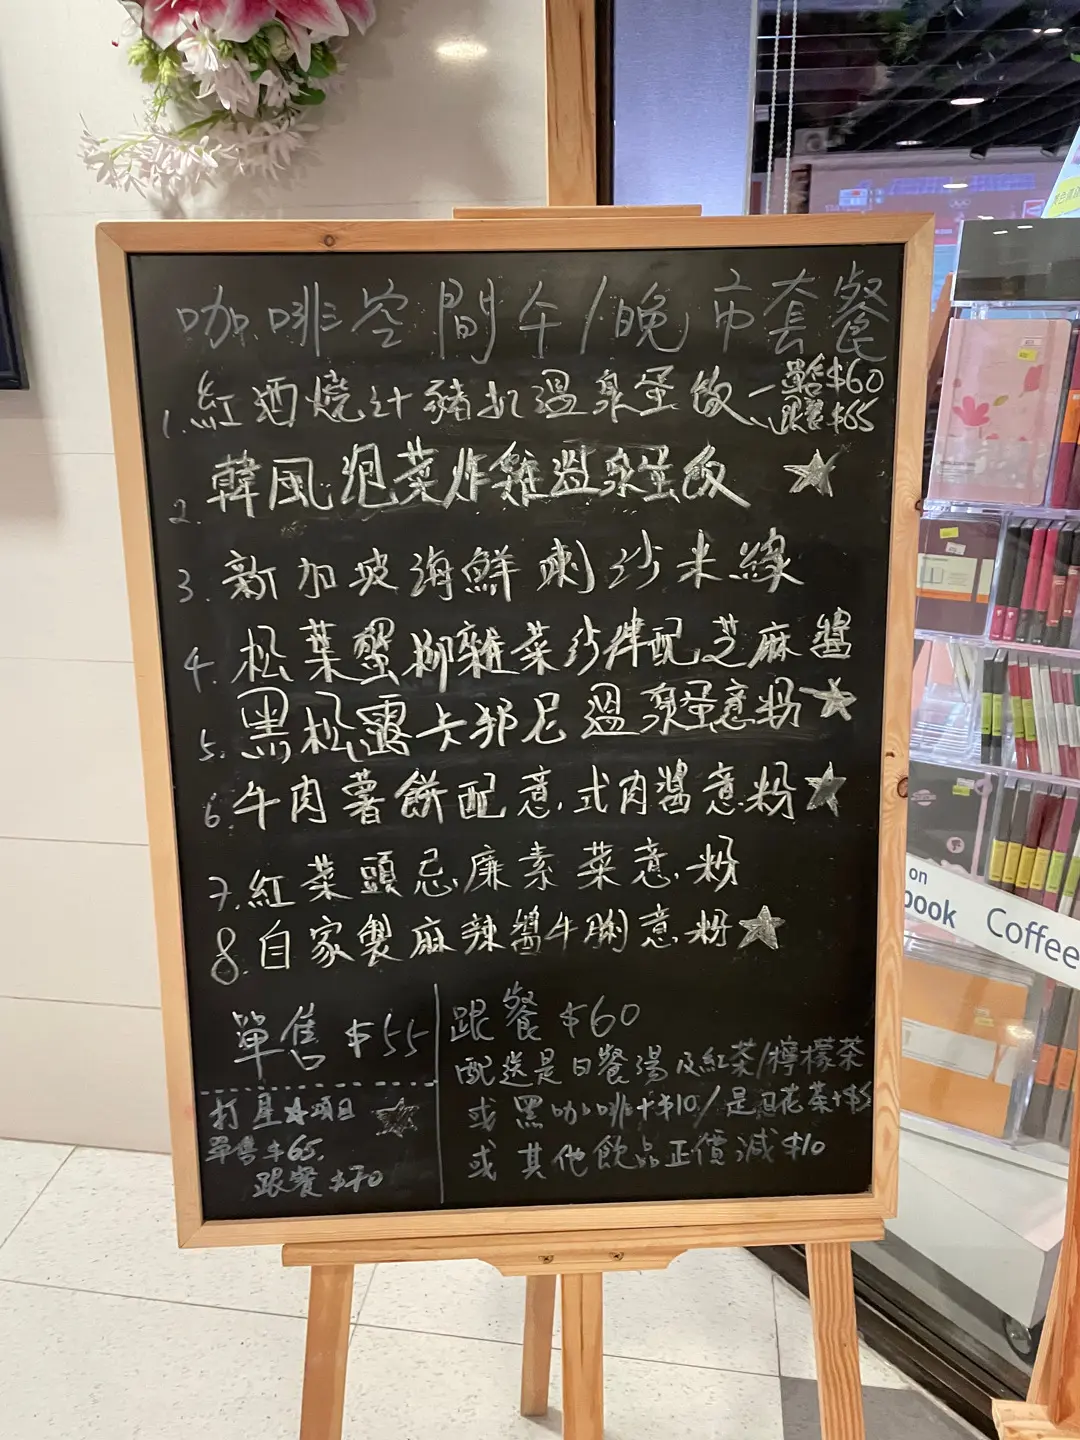 咖啡空間午/晚市套餐
1. 紅酒燒汁豬扒溫泉蛋飯 單售$60
跟餐$65
2. 韓風泡菜炸雞溫泉蛋飯 ★
3. 新加坡海鮮喇沙米線
4. 松葉蟹柳雜菜沙律配芝麻醬
5. 黑松露卡邦尼溫泉蛋意粉★
6. 牛肉薯餅配意式肉醬意粉★
7. 紅菜頭忌廉素菜意粉
8. 自家製麻辣醬牛𦟌意粉★
單售 $55
打星★項目 ★
單售$65.
跟餐$70
跟餐 $60
配送是日餐湯及紅茶/檸檬茶
或黑咖啡+$10/是日花茶+$5
或其他飲品正價減$10
on
book Coffee